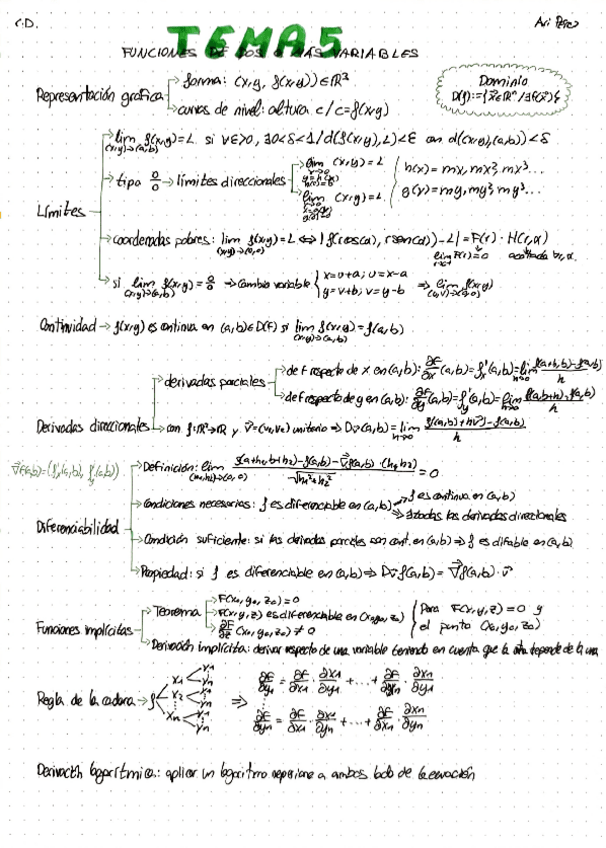 C.D.
Ari Pérez
TEMA5
FUNCIONES DE DOS O MÁS VARIABLES
Representación grafica
forma: (x,y, f(x,y)) ∈ ℝ³
curvas de nivel: altura c / c=f(x,y)
Dominio
D(f):={x⃗∈ℝⁿ/∃f(x⃗)}
Límites
lim f(x,y)=L si ∀ε>0, ∃0<δ<1/d(f(x,y),L)<ε con d((x,y),(a,b))<δ
(x,y)→(a,b)
tipo 0/0 → límites direccionales
lim (x,y)=L
x→0
y=h(x)
h(0)=0
lim (x,y)=L
h(x)=mx, mx², mx³...
g(y)=my, my², my³...
coordenadas polares: lim f(x,y)=L ⇔ |f(rcos(α), rsen(α))-L| = F(r) · H(r,α)
(x,y)→(0,0)
lim F(r)=0 acotada ∀r,α.
si lim f(x,y)=0/0 → Cambio variable
(x,y)→(a,b)
x=u+a; u=x-a
y=v+b; v=y-b
⇒ lim f(x,y)
(u,v)→(0,0)
Continuidad → f(x,y) es continua en (a,b)∈D(f) si lim f(x,y)=f(a,b)
(x,y)→(a,b)
Derivadas direccionales
derivadas parciales
def respecto de x en (a,b): ∂f/∂x (a,b)=f'x(a,b)=lim f(a+h,b)-f(a,b)/h
h→0
def respecto de y en (a,b): ∂f/∂y (a,b)=f'y(a,b)=lim f(a,b+h)-f(a,b)/h
h→0
con f:ℝ²→ℝ y v⃗=(v₁,v₂) unitario ⇒ Dv⃗(a,b)=lim f((a,b)+hv⃗)-f(a,b)/h
h→0
∇⃗f(a,b)=(f'x(a,b), f'y(a,b))
Diferenciabilidad
Definición: lim f(a+h₁,b+h₂)-f(a,b)-∇⃗f(a,b)·(h₁,h₂)/√h₁²+h₂² = 0
(h₁,h₂)→(0,0)
Condiciones necesarias: f es diferenciable en (a,b)
⇒ f es continua en (a,b)
⇒ ∃ todas las derivadas direccionales
Condición suficiente: si las derivadas parciales son cont. en (a,b) ⇒ f es difable en (a,b)
Propiedad: si f es diferenciable en (a,b) ⇒ Dv⃗f(a,b) = ∇⃗f(a,b)·v⃗
Funciones implícitas
Teorema
F(x₀,y₀,z₀)=0
F(x,y,z) es diferenciable en (x₀,y₀,z₀)
∂F/∂z (x₀,y₀,z₀) ≠ 0
Para F(x,y,z)=0 y
el punto (x₀,y₀,z₀)
Derivación implícita: derivar respecto de una variable teniendo en cuenta que la otra depende de la una
Regla de la cadena → f
x₁ x₂ xₙ
y₁ yₙ
⇒ ∂f/∂y₁ = ∂f/∂x₁ · ∂x₁/∂y₁ +...+ ∂f/∂xₙ · ∂xₙ/∂y₁
∂f/∂yₙ = ∂f/∂x₁ · ∂x₁/∂yₙ +...+ ∂f/∂xₙ · ∂xₙ/∂yₙ
Derivación logarítmica: aplicar un logaritmo neperiano a ambos lado de la ecuación